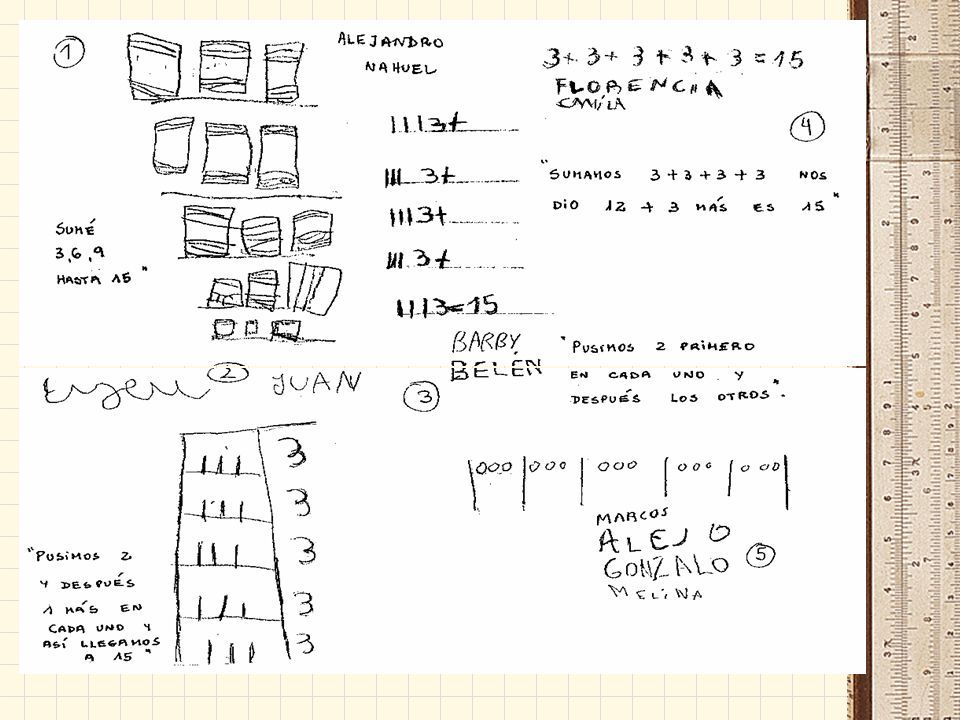 1
ALEJANDRO
NAHUEL
SUMÉ
3,6,9
HASTA 15"
3+ 3+ 3 + 3 + 3 = 15
FLORENCIA
CAMILA
4
"SUMAMOS 3+3+3+3 NOS
DIO 12 + 3 MÁS ES 15"
III 3+
III 3+
III 3+
III 3+
III 3=15
BARBY
BELÉN
3
"PUSIMOS 2 PRIMERO
EN CADA UNO Y
DESPUÉS LOS OTROS".
2
JUAN
3
3
3
3
3
"PUSIMOS 2
Y DESPUÉS
1 MÁS EN
CADA UNO Y
ASÍ LLEGAMOS
A 15"
MARCOS
ALEJO
GONZALO
MELINA
5